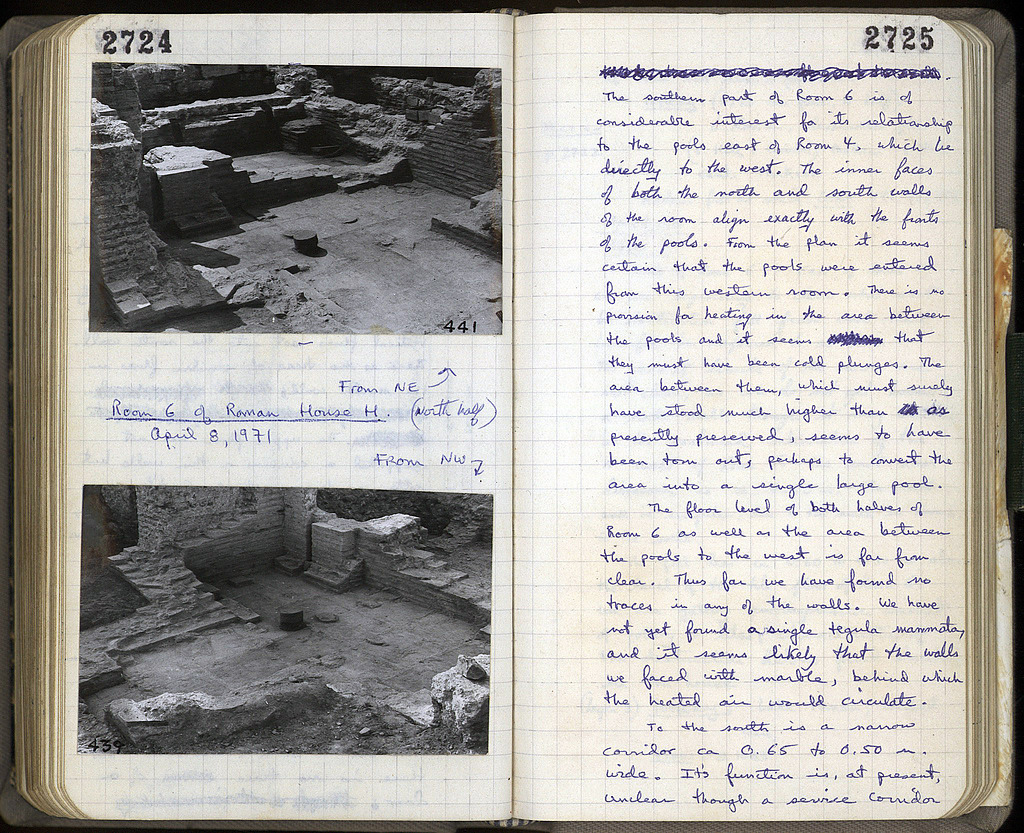 2724
441
From NE
Room 6 of Roman House H. (north half)
April 8, 1971
From NW
439
2725
The southern part of Room 6 is of
considerable interest for its relationship
to the pools east of Room 4, which lie
directly to the west. The inner faces
of both the north and south walls
of the room align exactly with the fronts
of the pools. From the plan it seems
certain that the pools were entered
from this western room. There is no
provision for heating in the area between
the pools and it seems that
they must have been cold plunges. The
area between them, which must surely
have stood much higher than as
presently preserved, seems to have
been torn out, perhaps to convert the
area into a single large pool.
The floor level of both halves of
Room 6 as well as the area between
the pools to the west is far from
clear. Thus far we have found no
traces in any of the walls. We have
not yet found a single tegula mammata,
and it seems likely that the walls
we faced with marble, behind which
the heated air would circulate.
To the south is a narrow
corridor ca 0.65 to 0.50 m.
wide. It's function is, at present,
unclear though a service corridor